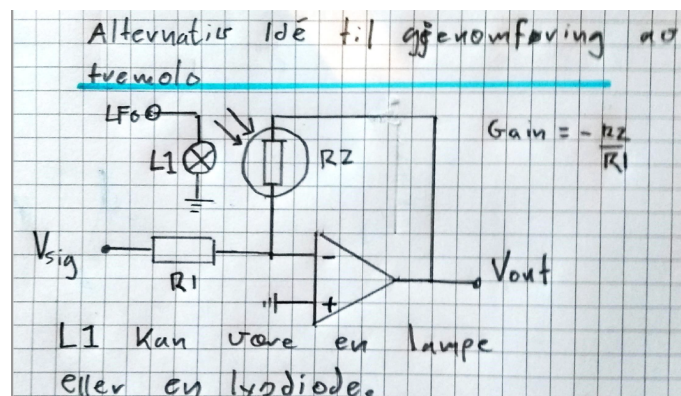 Alternativ Idé til gjenomføring av
tremolo
LFO
L1
R2
Gain = - R2
R1
Vsig
R1
-
+
Vout
L1 Kan være en lampe
eller en lysdiode.